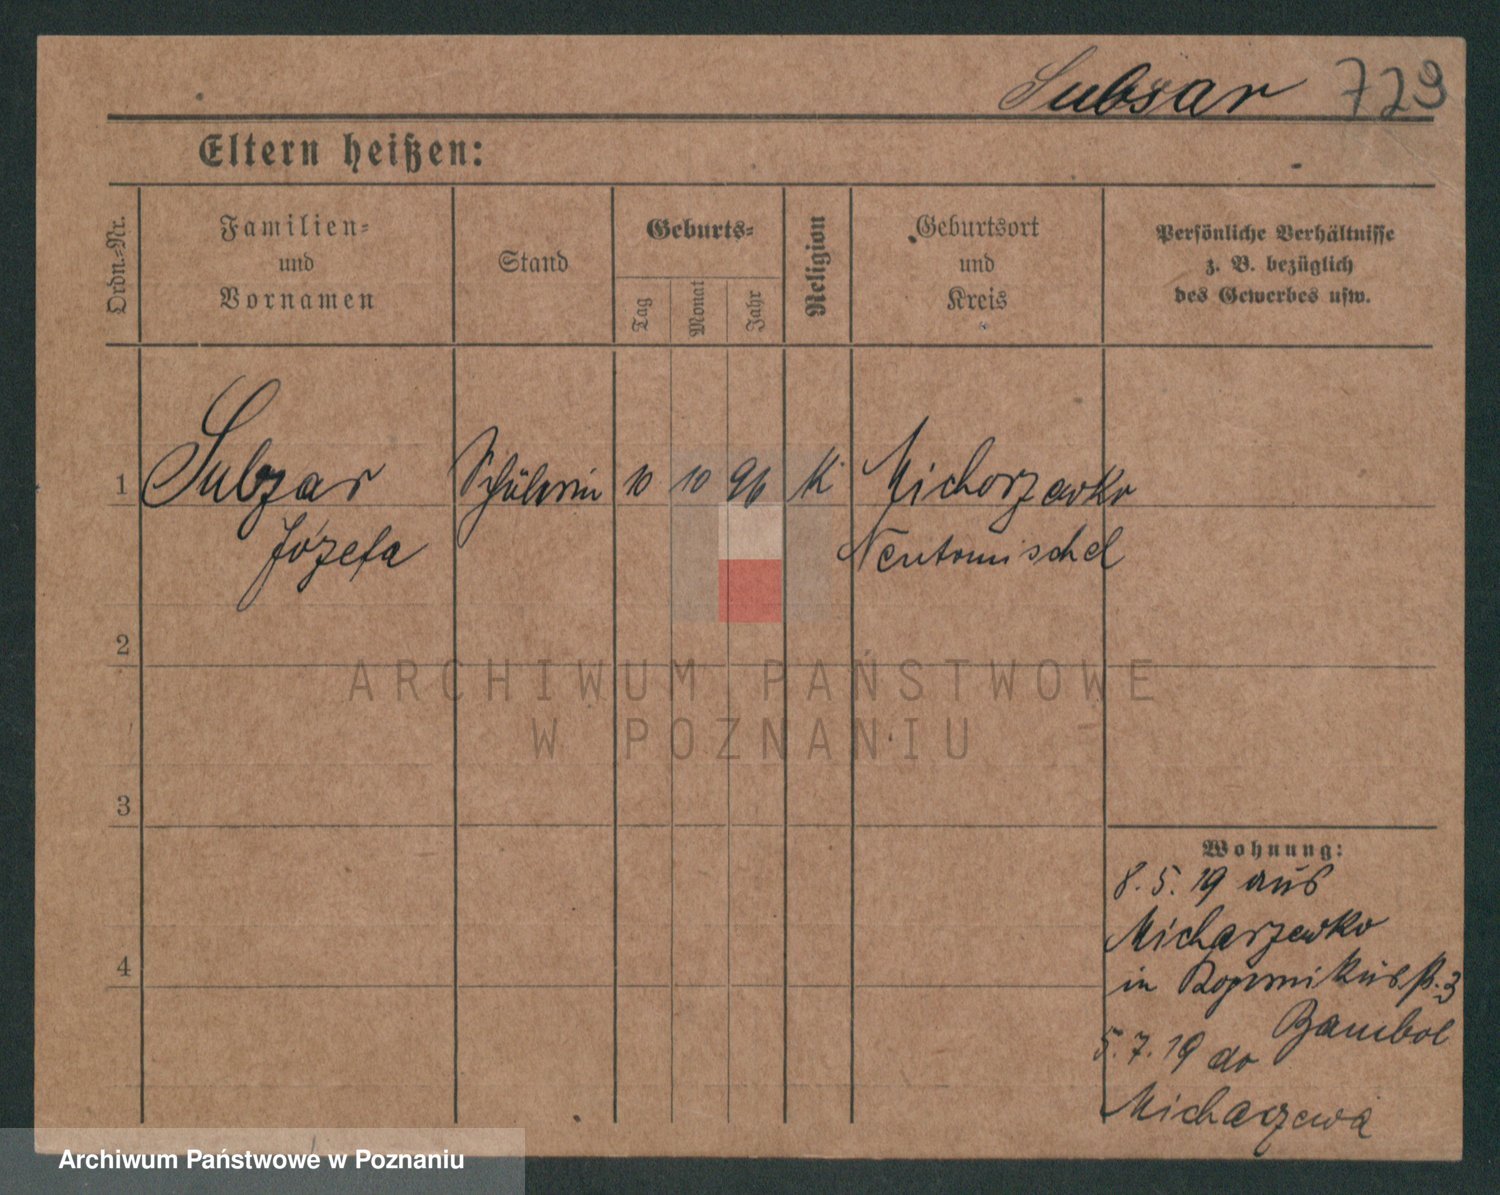 Subsar 729
Eltern heißen:
Ordn.-Nr.
Familien-
und
Vornamen
Stand
Geburts-
Tag
Monat
Jahr
Religion
Geburtsort
und
Kreis
Persönliche Verhältnisse
z. B. bezüglich
des Gewerbes usw.
1 Subzar Schülerin 10 10 96 K Michorzewko
Józefa Neutomischel
2
3
4
Wohnung:
8. 5. 19 aus
Micharzewko
in Kopernikusst. 3
Bambol
5. 7. 19 do
Micharzewa
ARCHIWUM PAŃSTWOWE
W POZNANIU
Archiwum Państwowe w Poznaniu